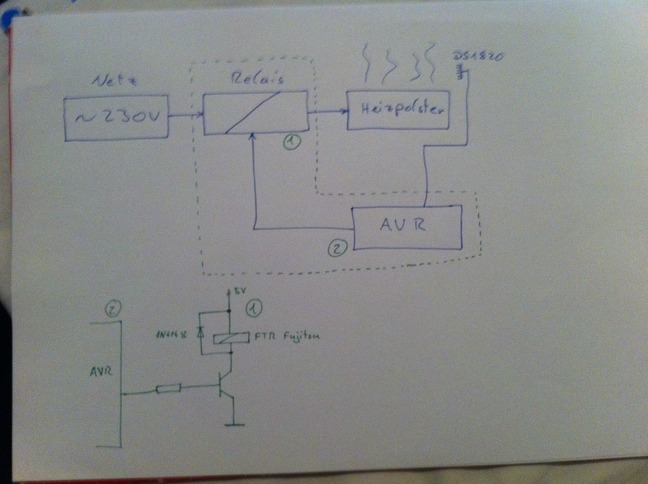 Netz
Relais
DS1820
~230V
Heizpolster
1
AVR
2
2
5V
1
FTR Fujitsu
AVR